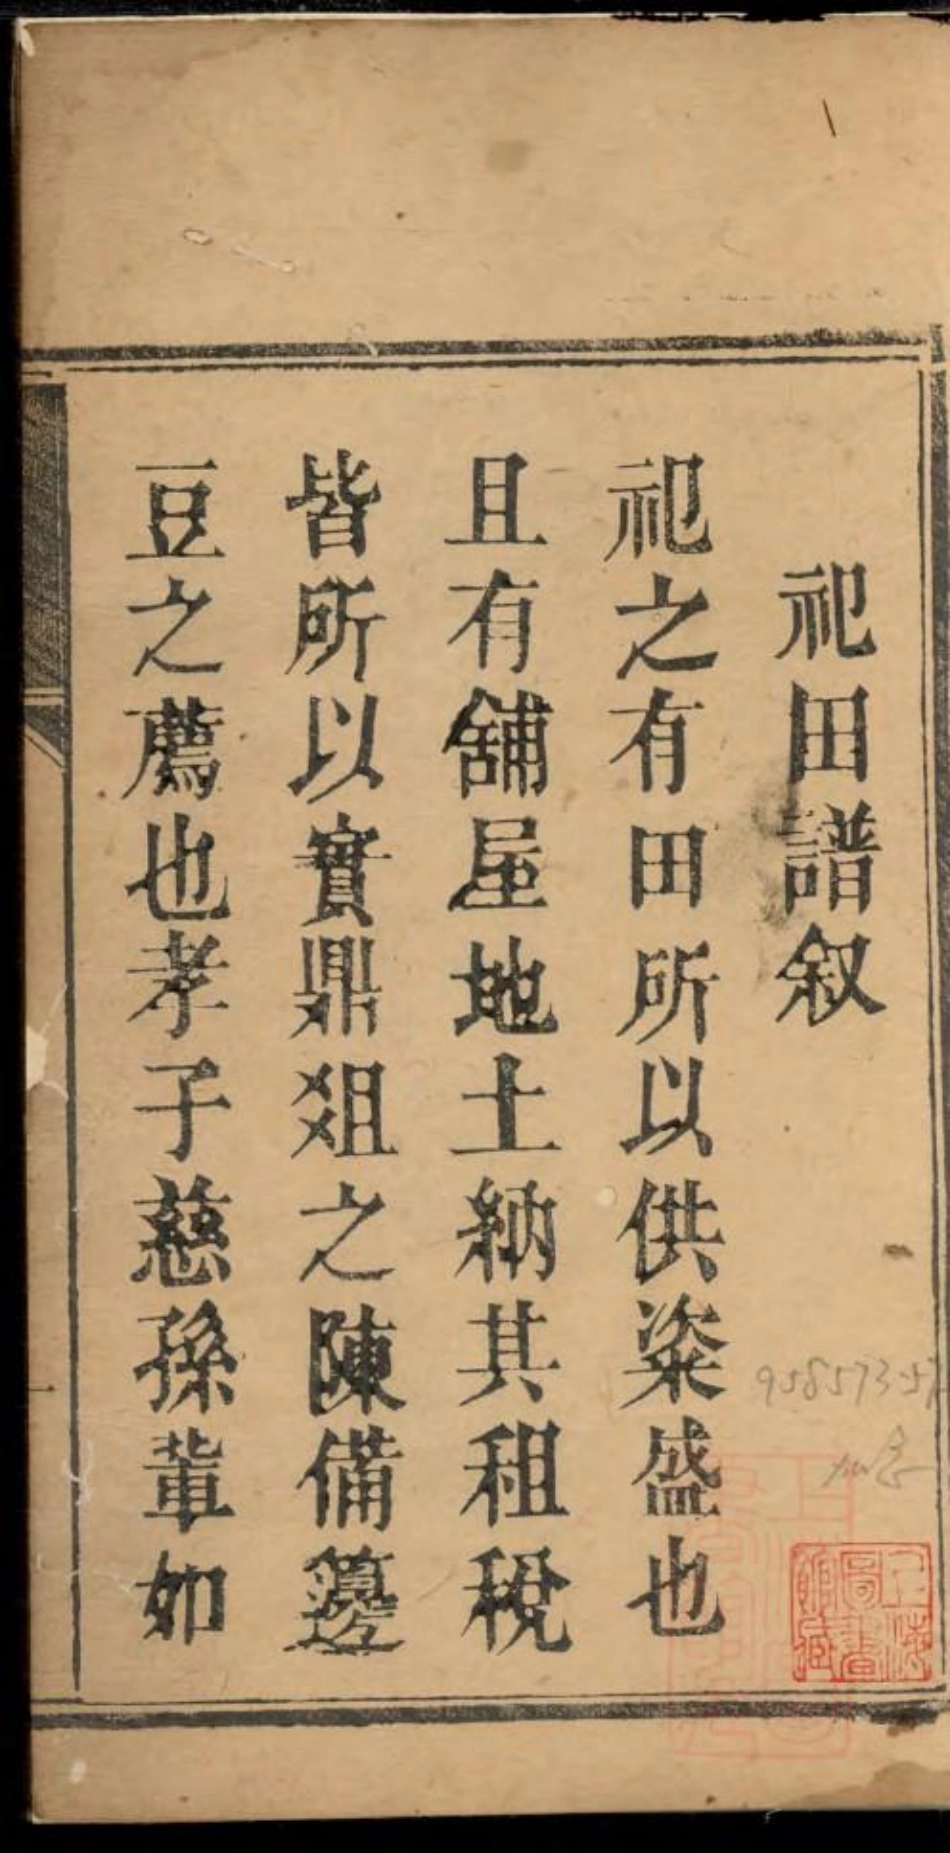 祀田譜叙
祀之有田所以供粢盛也
且有舖屋地土納其租稅
皆所以實鼎俎之陳備籩
豆之薦也孝子慈孫軰如
一
上海圖書館藏